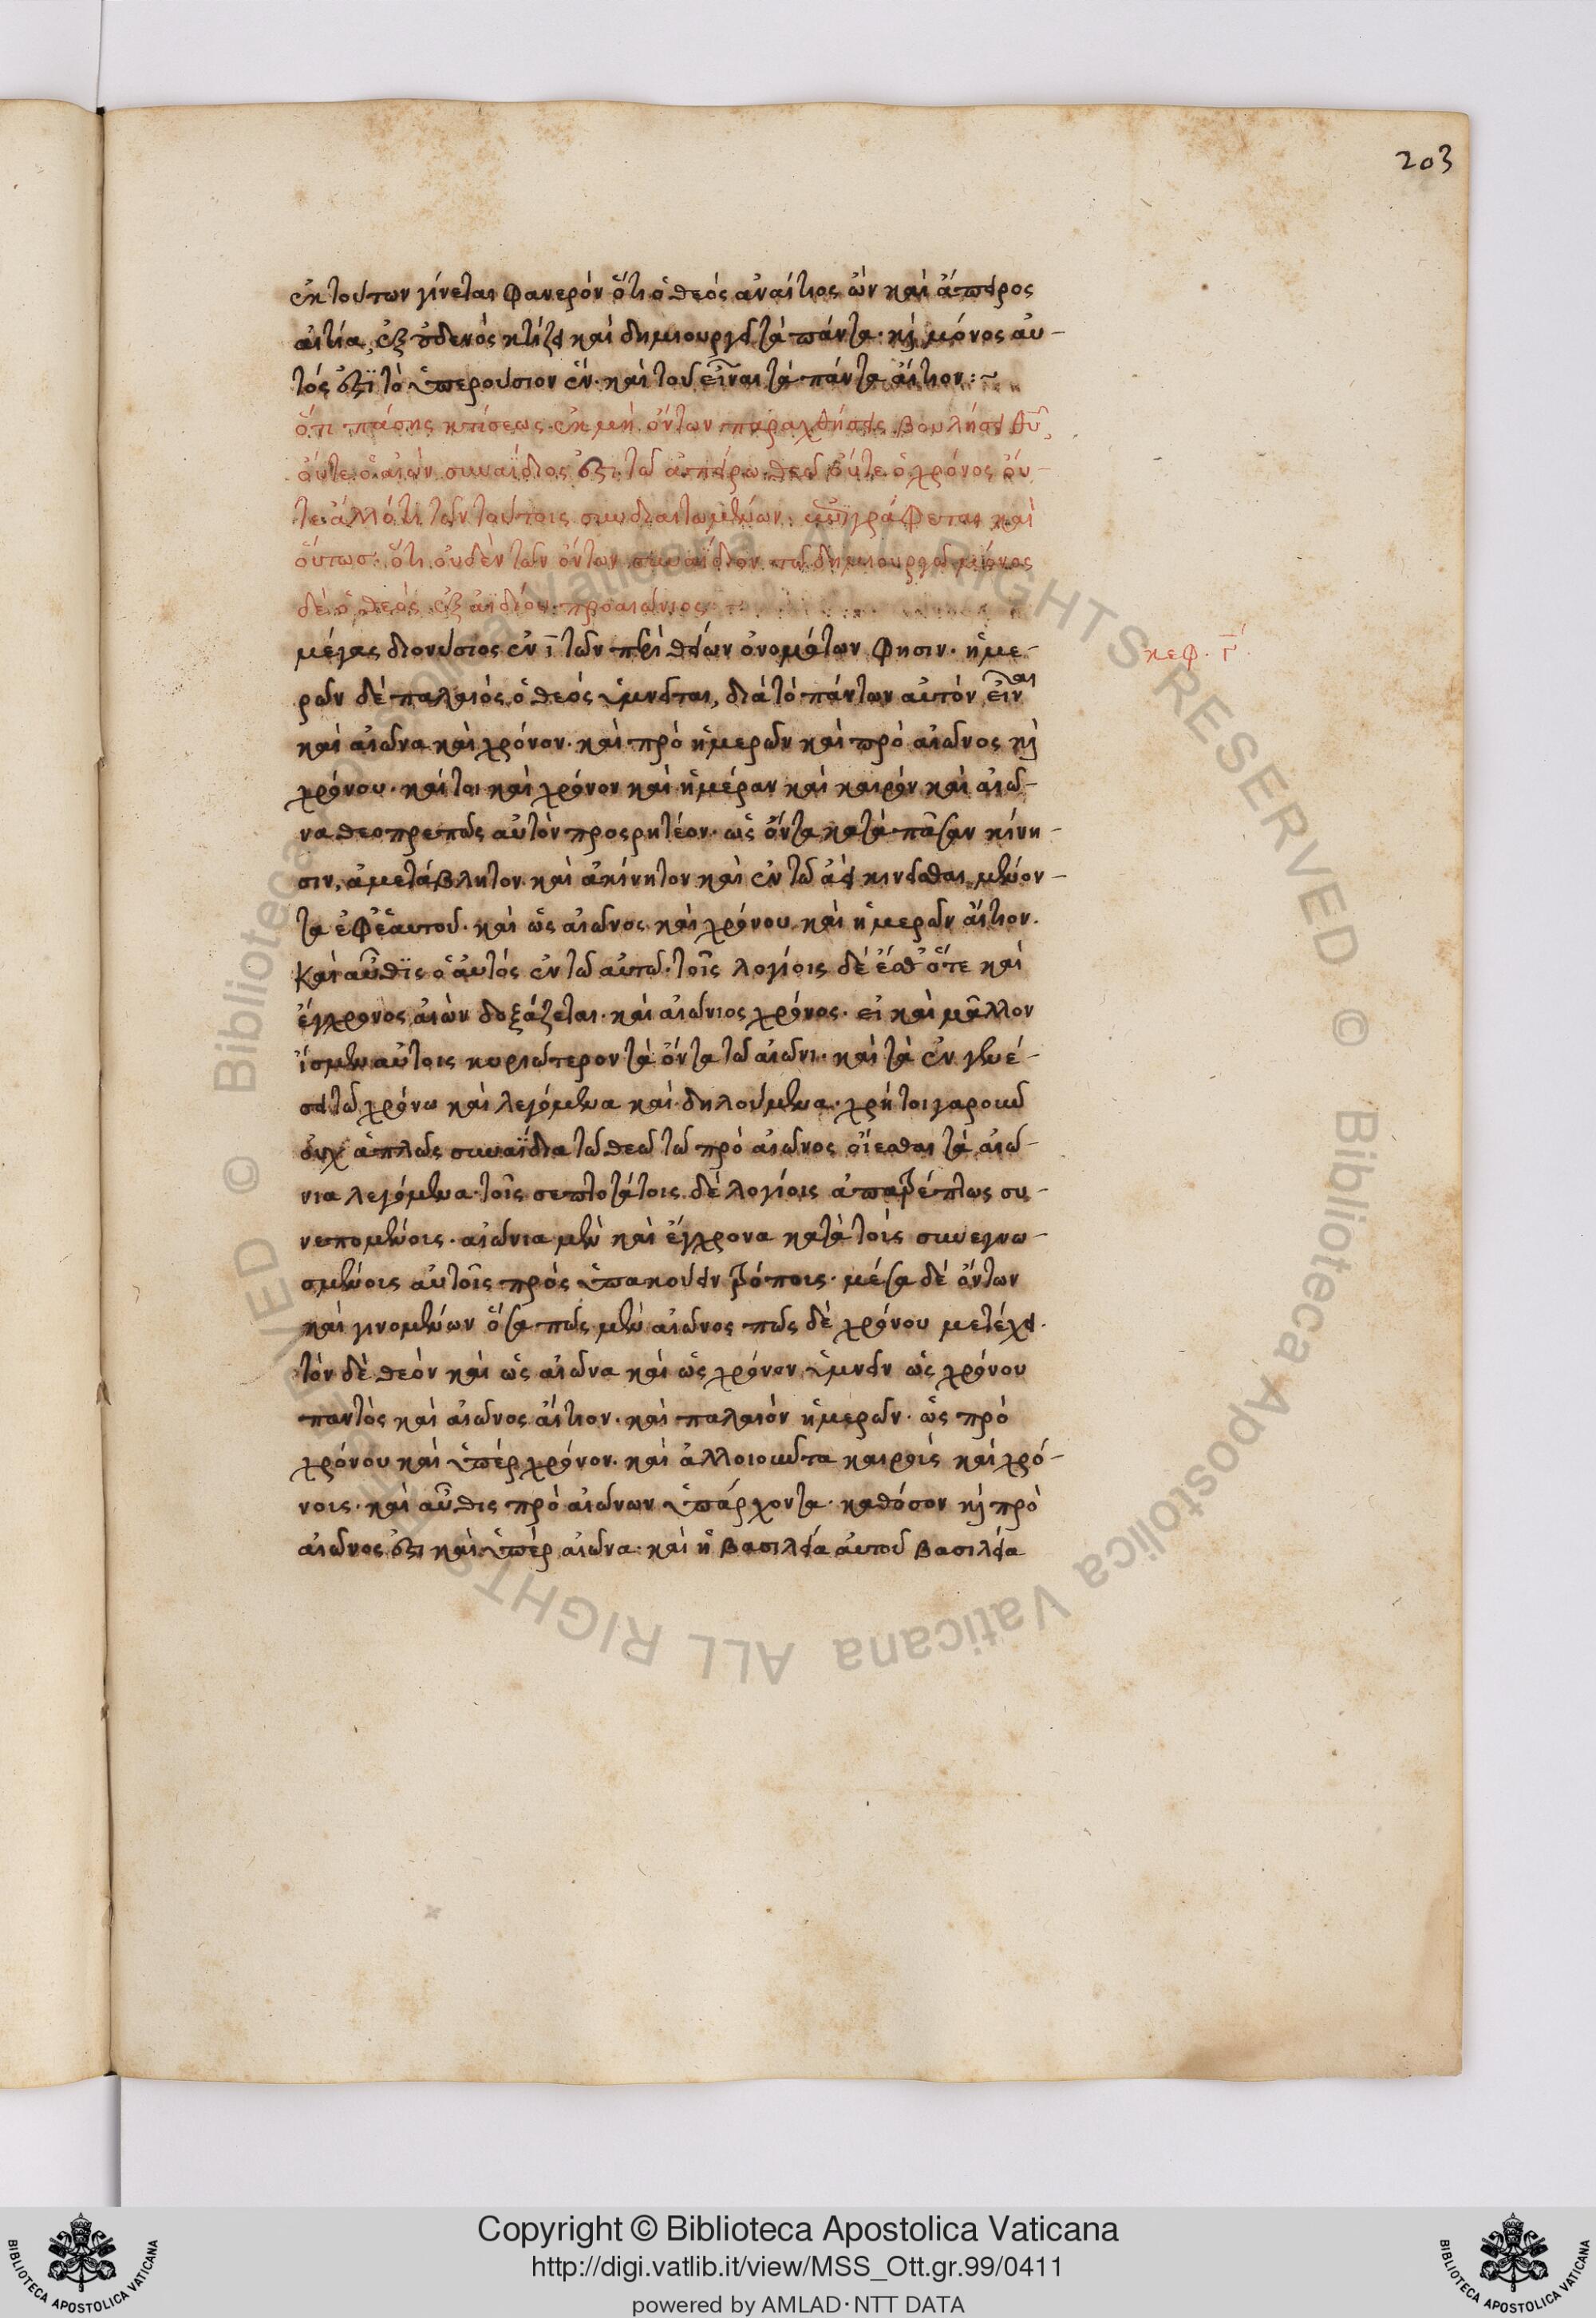 203
ἐκ τούτων γίνεται φανερὸν ὅτι ὁ θεὸς ἀναίτιος ὢν καὶ ἄπειρος
αἰτία, ἐξ οὐδενὸς κτίζει καὶ δημιουργεῖ τὰ πάντα· κὶ μόνος αὐ-
τός ἐστι τὸ ὑπερούσιον ἕν· καὶ τοῦ εἶναι τὰ πάντα αἴτιον:~
ὅτι πάσης κτίσεως ἐκ μὴ ὄντων παραχθήσης βουλήσει θῦ,
οὔτε ὁ αἰὼν συναΐδιός ἐστι τῶ ἀπείρω θεῶ οὔτε ὁ χρόνος οὔ-
τε ἄλλό τι τῶν τούτοις συνδιαιτωμένων· ἐπιγράφεται καὶ
οὕτως· ὅτι οὐδὲν τῶν ὄντων συναΐδιον τῶ δημιουργῶ μόνος
δὲ ὁ θεὸς ἐξ ἀϊδίου προαιώνιος:
μέγας διονύσιος ἐν ῑ τῶν πρὶ θείων ὀνομάτων φησιν· ἡμε-
κεφ. γ̄
ρῶν δὲ παλαιὸς ὁ θεὸς ὑμνεῖται, διὰ τὸ πάντων αὐτὸν εἶναι
καὶ αἰῶνα καὶ χρόνον· καὶ πρὸ ἡμερῶν καὶ πρὸ αἰῶνος κὶ
χρόνου· καί τοι καὶ χρόνον καὶ ἡμέραν καὶ καιρὸν καὶ αἰῶ-
να θεοπρεπῶς αὐτὸν προσρητέον· ὡς ὄντα κατὰ πᾶσαν κίνη-
σιν, ἀμετάβλητον καὶ ἀκίνητον καὶ ἐν τῶ ἀεὶ κινεῖσθαι μένον-
τα ἐφ' ἑαυτοῦ· καὶ ὡς αἰῶνος καὶ χρόνου καὶ ἡμερῶν αἴτιον.
καὶ αὖθϊς ὁ αὐτὸς ἐν τῶ αὐτῶ· τοῖς λογίοις δὲ ἔσθ' ὅτε καὶ
ἔγχρονος αἰὼν δοξάζεται· καὶ αἰώνιος χρόνος· εἰ καὶ μᾶλλον
ἴσμεν αὐτοῖς κυριώτερον τὰ ὄντα τῶ αἰῶνι· καὶ τὰ ἐν γενέ-
σει τῶ χρόνω καὶ λεγόμενα καὶ δηλούμενα· χρὴ τοιγαροῦν
οὐχ ἁπλῶς συναΐδια τῶ θεῶ τῶ πρὸ αἰῶνος οἴεσθαι τὰ αἰώ-
νια λεγόμενα· τοῖς σεπτοτάτοις δὲ λογίοις ἀπατρέπτως συ-
νεπομένοις· αἰώνια μὲν καὶ ἔγχρονα κατὰ τοὶς συνεγνω-
σμένοις αὐτοῖς πρὸς ὑπακούειν τρόποις· μέσα δὲ ὄντων
καὶ γινομένων ὅσα πῶς μὲν αἰῶνος πῶς δὲ χρόνου μετέχει·
τὸν δὲ θεὸν καὶ ὡς αἰῶνα καὶ ὡς χρόνον ὑμνεῖν ὡς χρόνου
παντὸς καὶ αἰῶνος αἴτιον· καὶ παλαιὸν ἡμερῶν· ὡς πρὸ
χρόνου καὶ ὑπὲρ χρόνον· καὶ ἀλλοιοῦντα καιροὶς καὶ χρό-
νοις· καὶ αὖθις πρὸ αἰώνων ὑπάρχοντα· καθόσον κὶ πρὸ
αἰῶνος ἐστι καὶ ὑπὲρ αἰῶνα· καὶ ἡ βασιλεία ἀυτοῦ βασιλεία
Copyright © Biblioteca Apostolica Vaticana
http://digi.vatlib.it/view/MSS_Ott.gr.99/0411
powered by AMLAD·NTT DATA